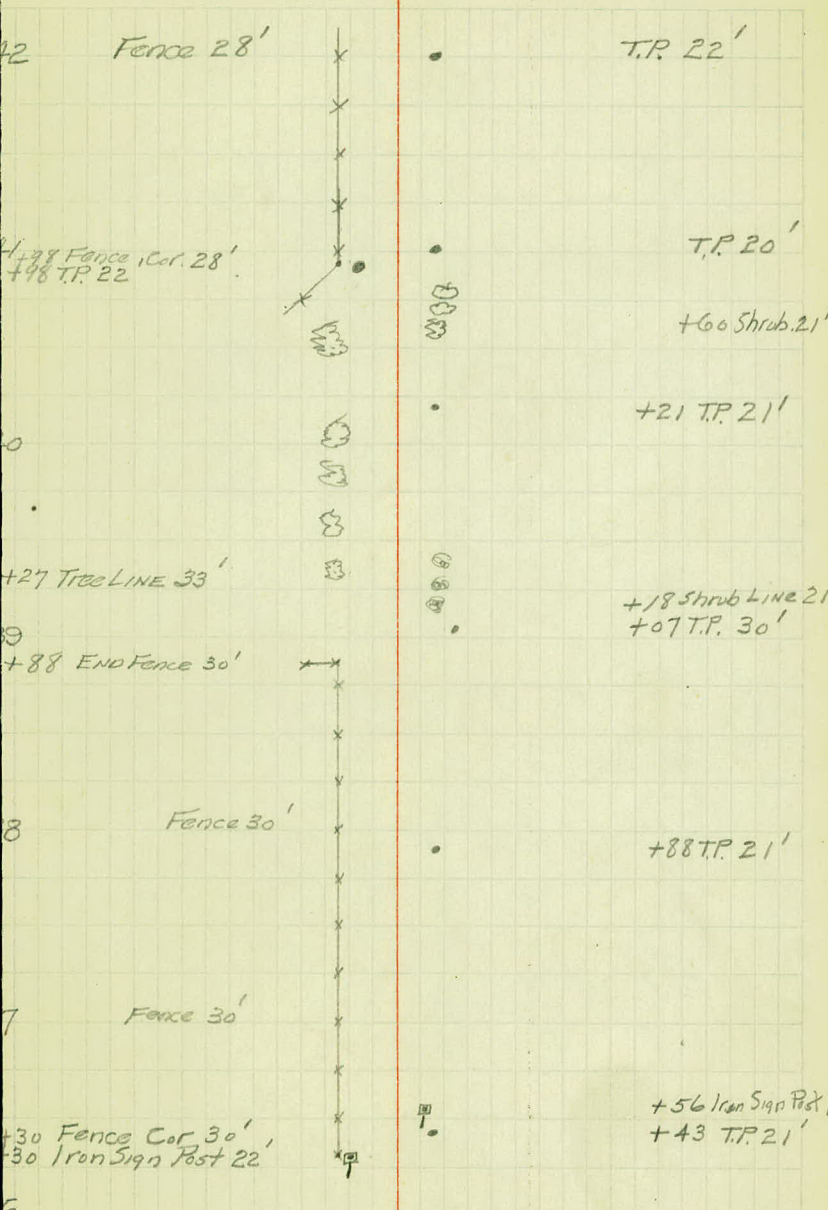 42 Fence 28' T.P. 22'
T.P. 20'
+98 Fence Cor. 28'
+98 T.P. 22
+60 Shrub. 21'
+21 T.P. 21'
+27 Tree LINE 33'
+18 Shrub LINE 21
+07 T.P. 30'
39
+88 END Fence 30'
8 Fence 30'
+88 T.P. 21'
7 Fence 30'
+56 Iron Sign Post
+43 T.P. 21'
+30 Fence Cor 30',
+30 Iron Sign Post 22'